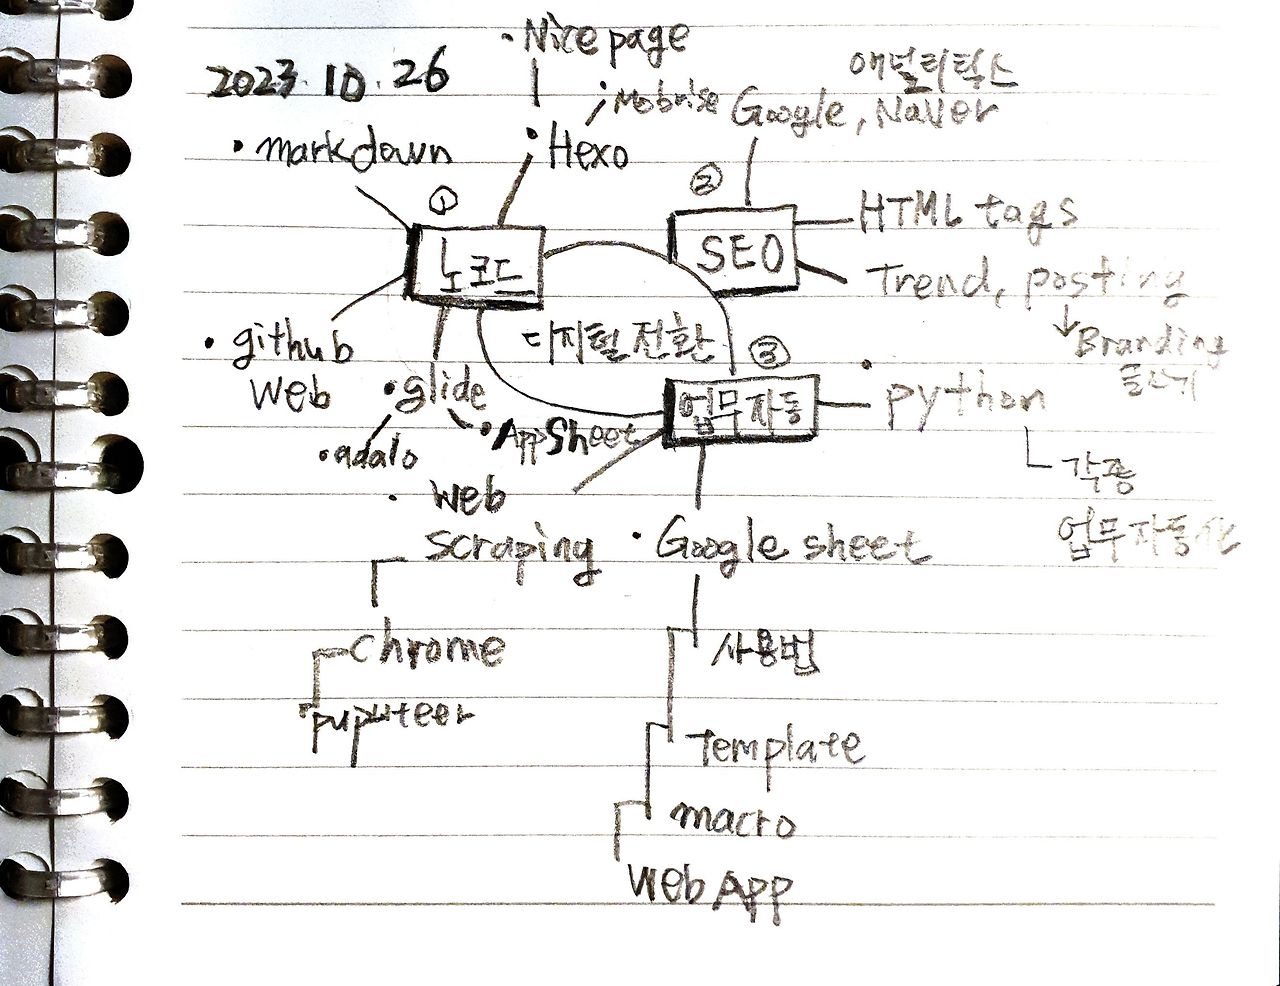 2023.10.26
• Nicepage
• Mobirise
애널리틱스
Google, Naver
• markdown
• Hexo
①
노코드
②
SEO
HTML tags
Trend, posting
↓ Branding
디지털 전환
• github
web
• glide
• adalo
• AppSheet
③
업무자동
• python
각종
업무자동화
• web
scraping
chrome
• puputeer
• Google sheet
사용법
Template
macro
Web App